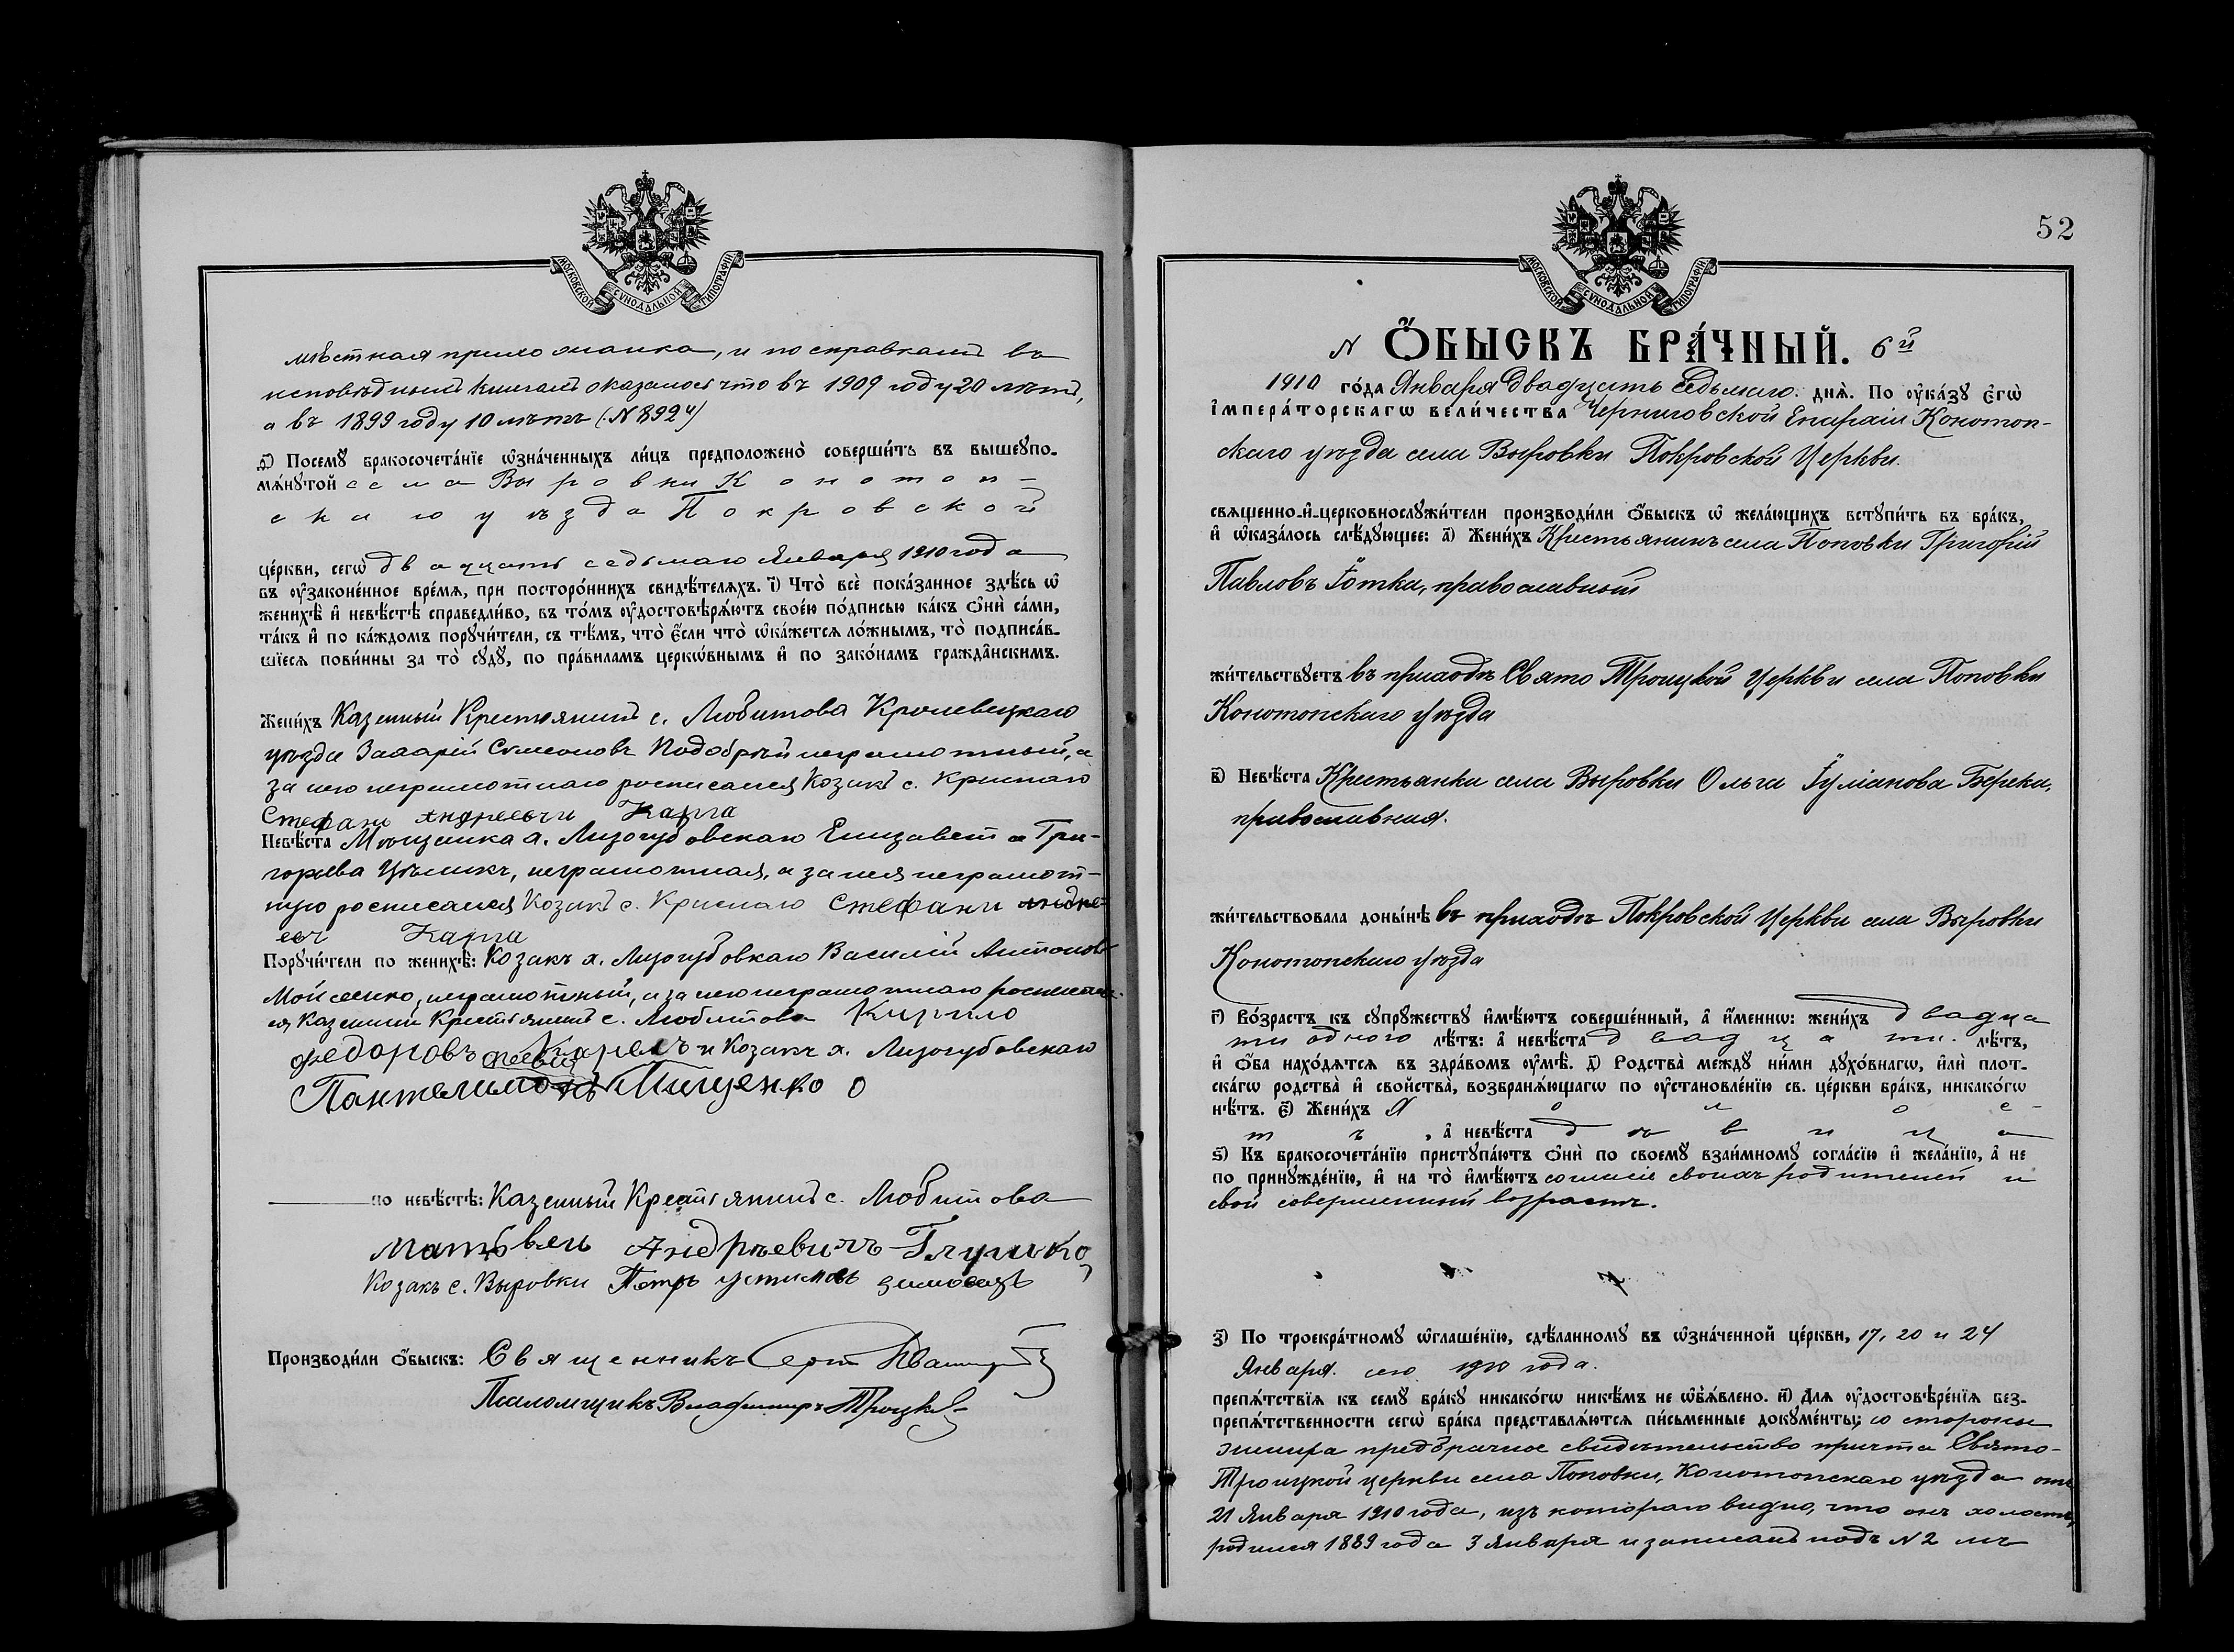 МОСКОВСКОЙ СУНОДАЛЬНОЙ ТИПОГРАФІИ
мѣстная прихожанка, и по справкамъ въ
исповѣдныхъ книгахъ оказалось что въ 1909 году 20 лѣтъ,
а въ 1899 году 10 лѣтъ (N 8994)
Посемꙋ̀ бракосочета́нїе ѡ҆зна́ченныхъ ли́цъ предположено̀ соверши́ть въ вышеꙋпо-
мѧ́нꙋтой села Выровки Конотоп-
скаго уѣзда Покровской
це́ркви, сегѡ̀ двадцать седьмаго Января 1910 года
въ ᲂу҆законе́нное вре́мѧ, при посторо́ннихъ свидѣ́телѧхъ. і҃) Что̀ всѐ пока́занное здѣ́сь ѡ҆
женихѣ̀ и҆ невѣ́стѣ справедли́во, въ то́мъ ᲂу҆достовѣрѧ́ютъ свое́ю по́дписью ка́къ ѻ҆нѝ са́ми,
та́къ и҆ по ка́ждомъ порꙋчи́тели, съ тѣ́мъ, что̀ є҆́сли что̀ ѡ҆ка́жетсѧ ло́жнымъ, то̀ подписа́в-
шїесѧ пови́нны за то̀ сꙋдꙋ̀, по пра́виламъ церкѡ́внымъ и҆ по зако́намъ гражда̂нскимъ.
Жени́хъ Казенный Крестьянинъ с. Любитова Кролевецкаго
уѣзда Захарій Симеоновъ Подобрый неграмотный, а
за него неграмотнаго росписался Козакъ с. Краснаго
Стефанъ Андреевъ Карпа
Невѣ́ста Мѣщанка х. Лизогубовскаго Елизавета Гри-
горьева Цѣликъ, неграмотная, а за нея неграмот-
ную росписался Козакъ с. Краснаго Стефанъ андре-
евъ Карпа
Порꙋчи́тели по женихѣ̀: Козакъ х. Лизогубовкаго Василій Антоновъ
Мойсенко, неграмотный, а за него неграмотнаго росписал-
ся Казенный Крестьянинъ с. Любитова Кирило
федоровъ и Козакъ х. Лизогубовскаго
Пантелимонъ Мищенко
по невѣ́стѣ: Казенный Крестьянинъ с. Любитова
Матвѣй Андрѣевичъ Глушко
Козакъ с. Выровки Петръ устимовъ
Производи́ли ѻ҆́быскъ: Священникъ
Псаломщикъ Владимиръ Троцкій
52
МОСКОВСКОЙ СУНОДАЛЬНОЙ ТИПОГРАФІИ
N Ѻ҆́БЫСКЪ БРА́ЧНЫЙ. 6й
1910 го́да Января двадцать седьмаго. днѧ̀. По ᲂу҆ка́зꙋ є҆гѡ̀
і҆мпера́торскагѡ вели́чества Черниговской Епархіи Конотоп-
скаго уѣзда села Выровки Покровской Церкви.
свѧщенно-и҆-церковнослꙋжи́тели производи́ли ѻ҆́быскъ ѡ҆ жела́ющихъ встꙋпи́ть въ бра́къ,
и҆ ѡ҆каза́лось слѣ́дꙋющее: а҃) Жени́хъ Крестьянинъ села Поповки Григорій
Павловъ Іотка, православный
жи́тельствꙋетъ въ приходѣ Свято Троицкой Церкви села Поповки
Конотопскаго уѣзда
в҃) Невѣ́ста Крестьянка села Выровки Ольга Іуліанова Берека,
православная.
жи́тельствовала доны́нѣ въ приходѣ Покровской Церкви села Выровки
Конотопскаго уѣзда
г҃) Во́зрастъ къ сꙋпрꙋ́жествꙋ и҆мѣ́ютъ соверше́нный, а҆ и҆́меннѡ: жени́хъ двадца-
ти одного лѣ́тъ: а҆ невѣ́ста двадцати. лѣ́тъ,
и҆ ѻ҆́ба нахо́дѧтсѧ въ здра́вомъ ᲂу҆мѣ̀. д҃) Родства̀ ме́ждꙋ ни́ми дꙋхо́внагѡ, и҆лѝ плот-
ска́гѡ родства̀ и҆ свойства̀, возбранѧ́ющагѡ по ᲂу҆становле́нїю св. це́ркви бра́къ, никако́гѡ
нѣ́тъ. є҃) Жени́хъ холос-
тъ, а҆ невѣ́ста дѣвица
ѕ҃) Къ бракосочета́нїю пристꙋпа́ютъ ѻ҆нѝ по своемꙋ̀ взаи́мномꙋ согла́сїю и҆ жела́нїю, а҆ не
по принꙋжде́нїю, и҆ на то̀ и҆мѣ́ютъ согласіе своихъ родителей и
свой совершенный возрастъ.
з҃) По троекра́тномꙋ ѡ҆глаше́нїю, сдѣ́ланномꙋ въ ѡ҆зна́ченной це́ркви, 17, 20 и 24
Января. сего 1910 года.
препѧ́тствїѧ къ семꙋ̀ бра́кꙋ никако́гѡ никѣ́мъ не ѡ҆б̾ѧ́влено. и҃) Длѧ ᲂу҆достовѣре́нїѧ без-
препѧ́тственности сегѡ̀ бра́ка представлѧ́ютсѧ пи́сьменные докꙋме́нты; со стороны
жениха предбрачное свидѣтельство причта Свято-
Троицкой церкви села Поповки, Конотопскаго уѣзда отъ
21 Января 1910 года, изъ котораго видно, что онъ холостъ,
родился 1889 года 3 Января и записанъ подъ N 2 мъ